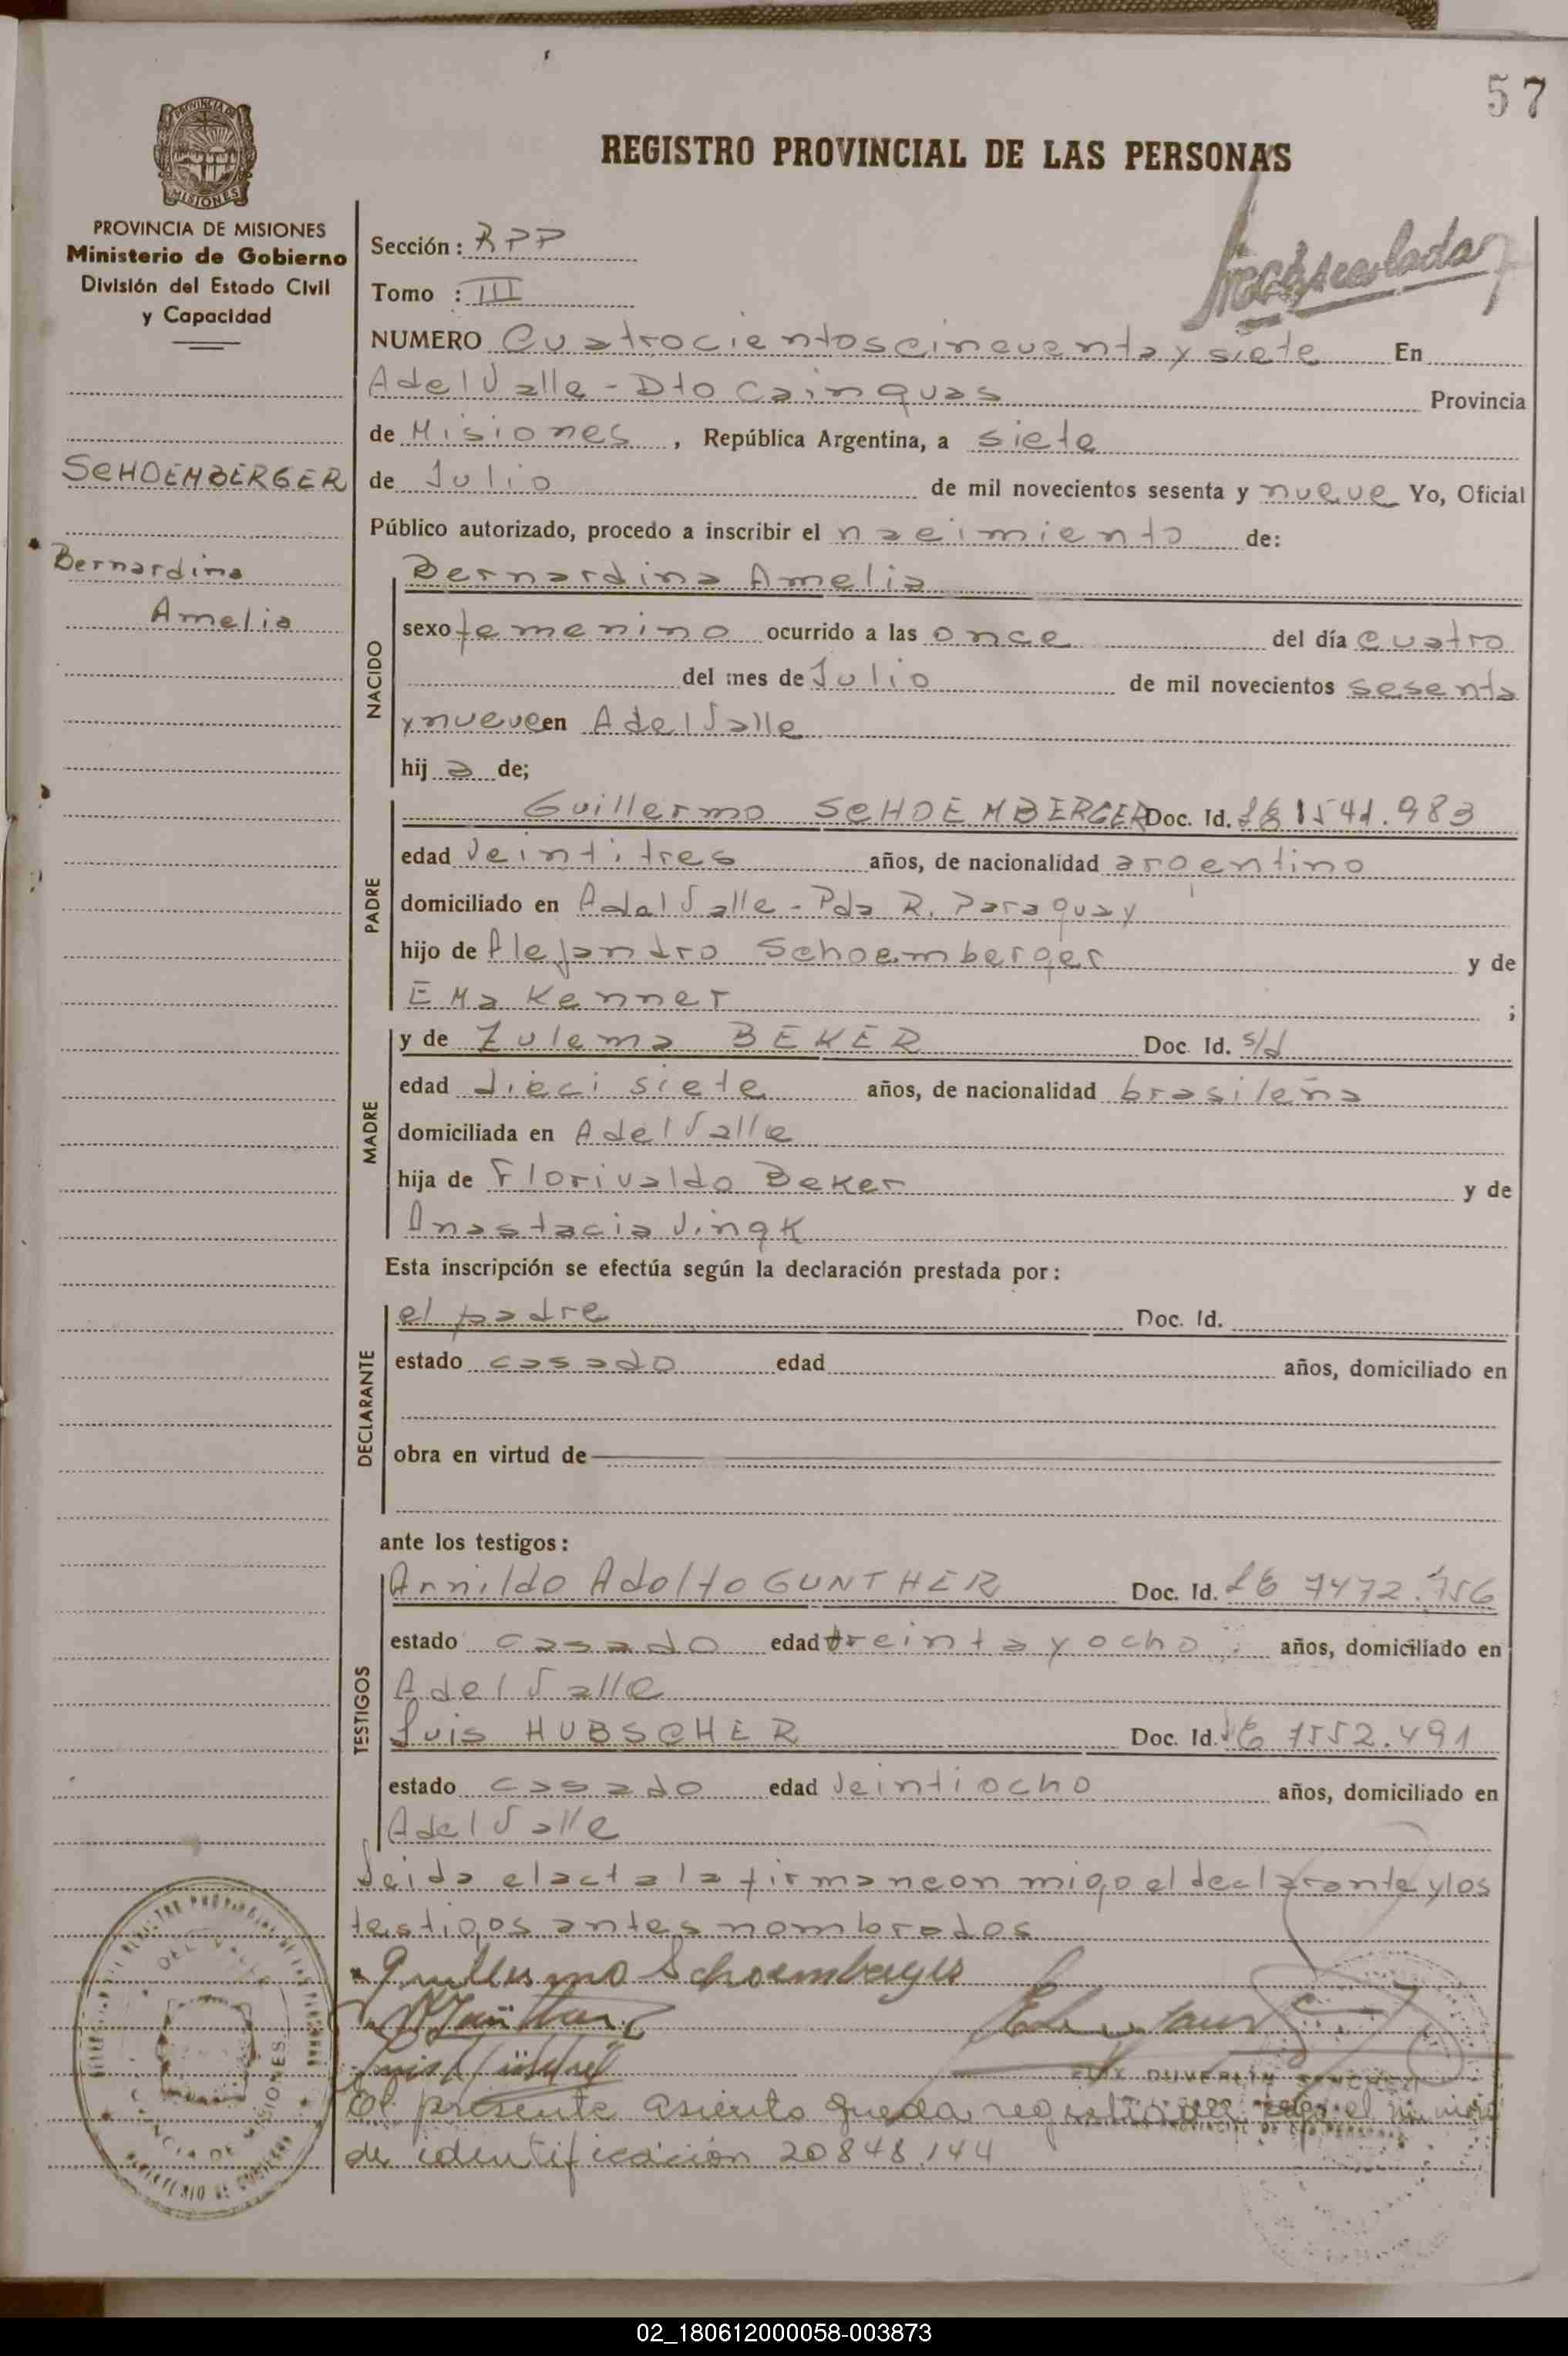 57
PROVINCIA DE
MISIONES
REGISTRO PROVINCIAL DE LAS PERSONAS
PROVINCIA DE MISIONES
Ministerio de Gobierno
División del Estado Civil
y Capacidad
SCHOEMBERGER
Bernardina
Amelia
Sección: RPP
Tomo : III
NUMERO Cuatrocientoscincuenta y siete En
A del Valle - Dto Cainguas Provincia
de Misiones, República Argentina, a siete
de Julio de mil novecientos sesenta y nueve Yo, Oficial
Público autorizado, procedo a inscribir el nacimiento de:
NACIDO
Bernardina Amelia
sexo femenino ocurrido a las once del día cuatro
del mes de Julio de mil novecientos sesenta
y nueve en A del Valle
hij a de;
PADRE
Guillermo SCHOEMBERGER Doc. Id. 1541.983
edad Veintitres años, de nacionalidad argentino
domiciliado en A dal Valle - Pda R. Paraguay
hijo de Alejandro Schoemberger y de
EMa Kenner ;
MADRE
y de Zulema BEKER Doc. Id. s/d
edad dieci siete años, de nacionalidad brasileña
domiciliada en A del Valle
hija de Florivaldo Beker y de
Anastacia Jingk
Esta inscripción se efectúa según la declaración prestada por:
DECLARANTE
el padre Doc. Id.
estado casado edad años, domiciliado en
obra en virtud de
ante los testigos:
TESTIGOS
Arnildo Adolfo GUNTHER Doc. Id. LE 7472.756
estado casado edad treinta y ocho años, domiciliado en
A del Valle
Luis HUBSCHER Doc. Id. LE 7552.491
estado casado edad Veintiocho años, domiciliado en
A del Valle
Leida el acta la firman con migo el declarante y los
testigos antes nombrados
Guillermo Schoemberger
El presente asiento queda registrado el número
de identificación 20848.144
02_180612000058-003873